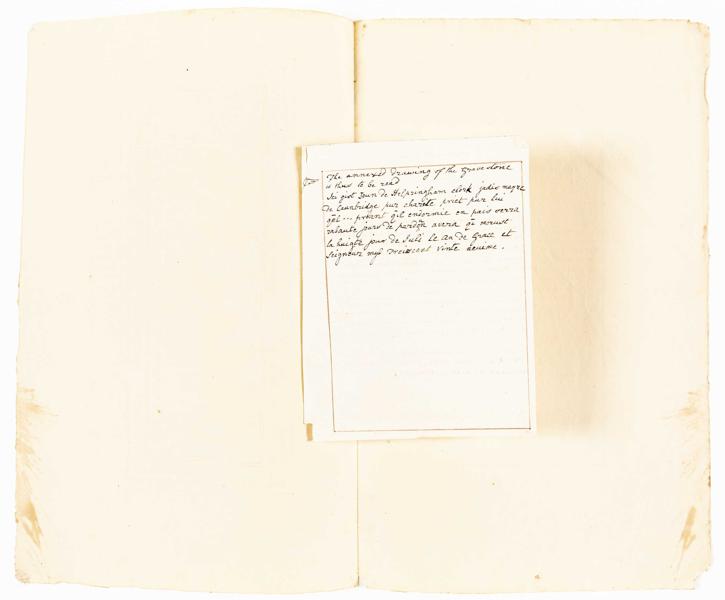 The annexed drawing of the Grave stone
is thus to be read
Ici gist Jean de Helpringham clerk jadis
de Caunbridge pur charite priet pur lui
qil ... priant qil endormie en pais serra
jours de pardon avera qi morust
la jour de Juli le an de Grace et
Seigneur myl Treiscent vinte neuime.